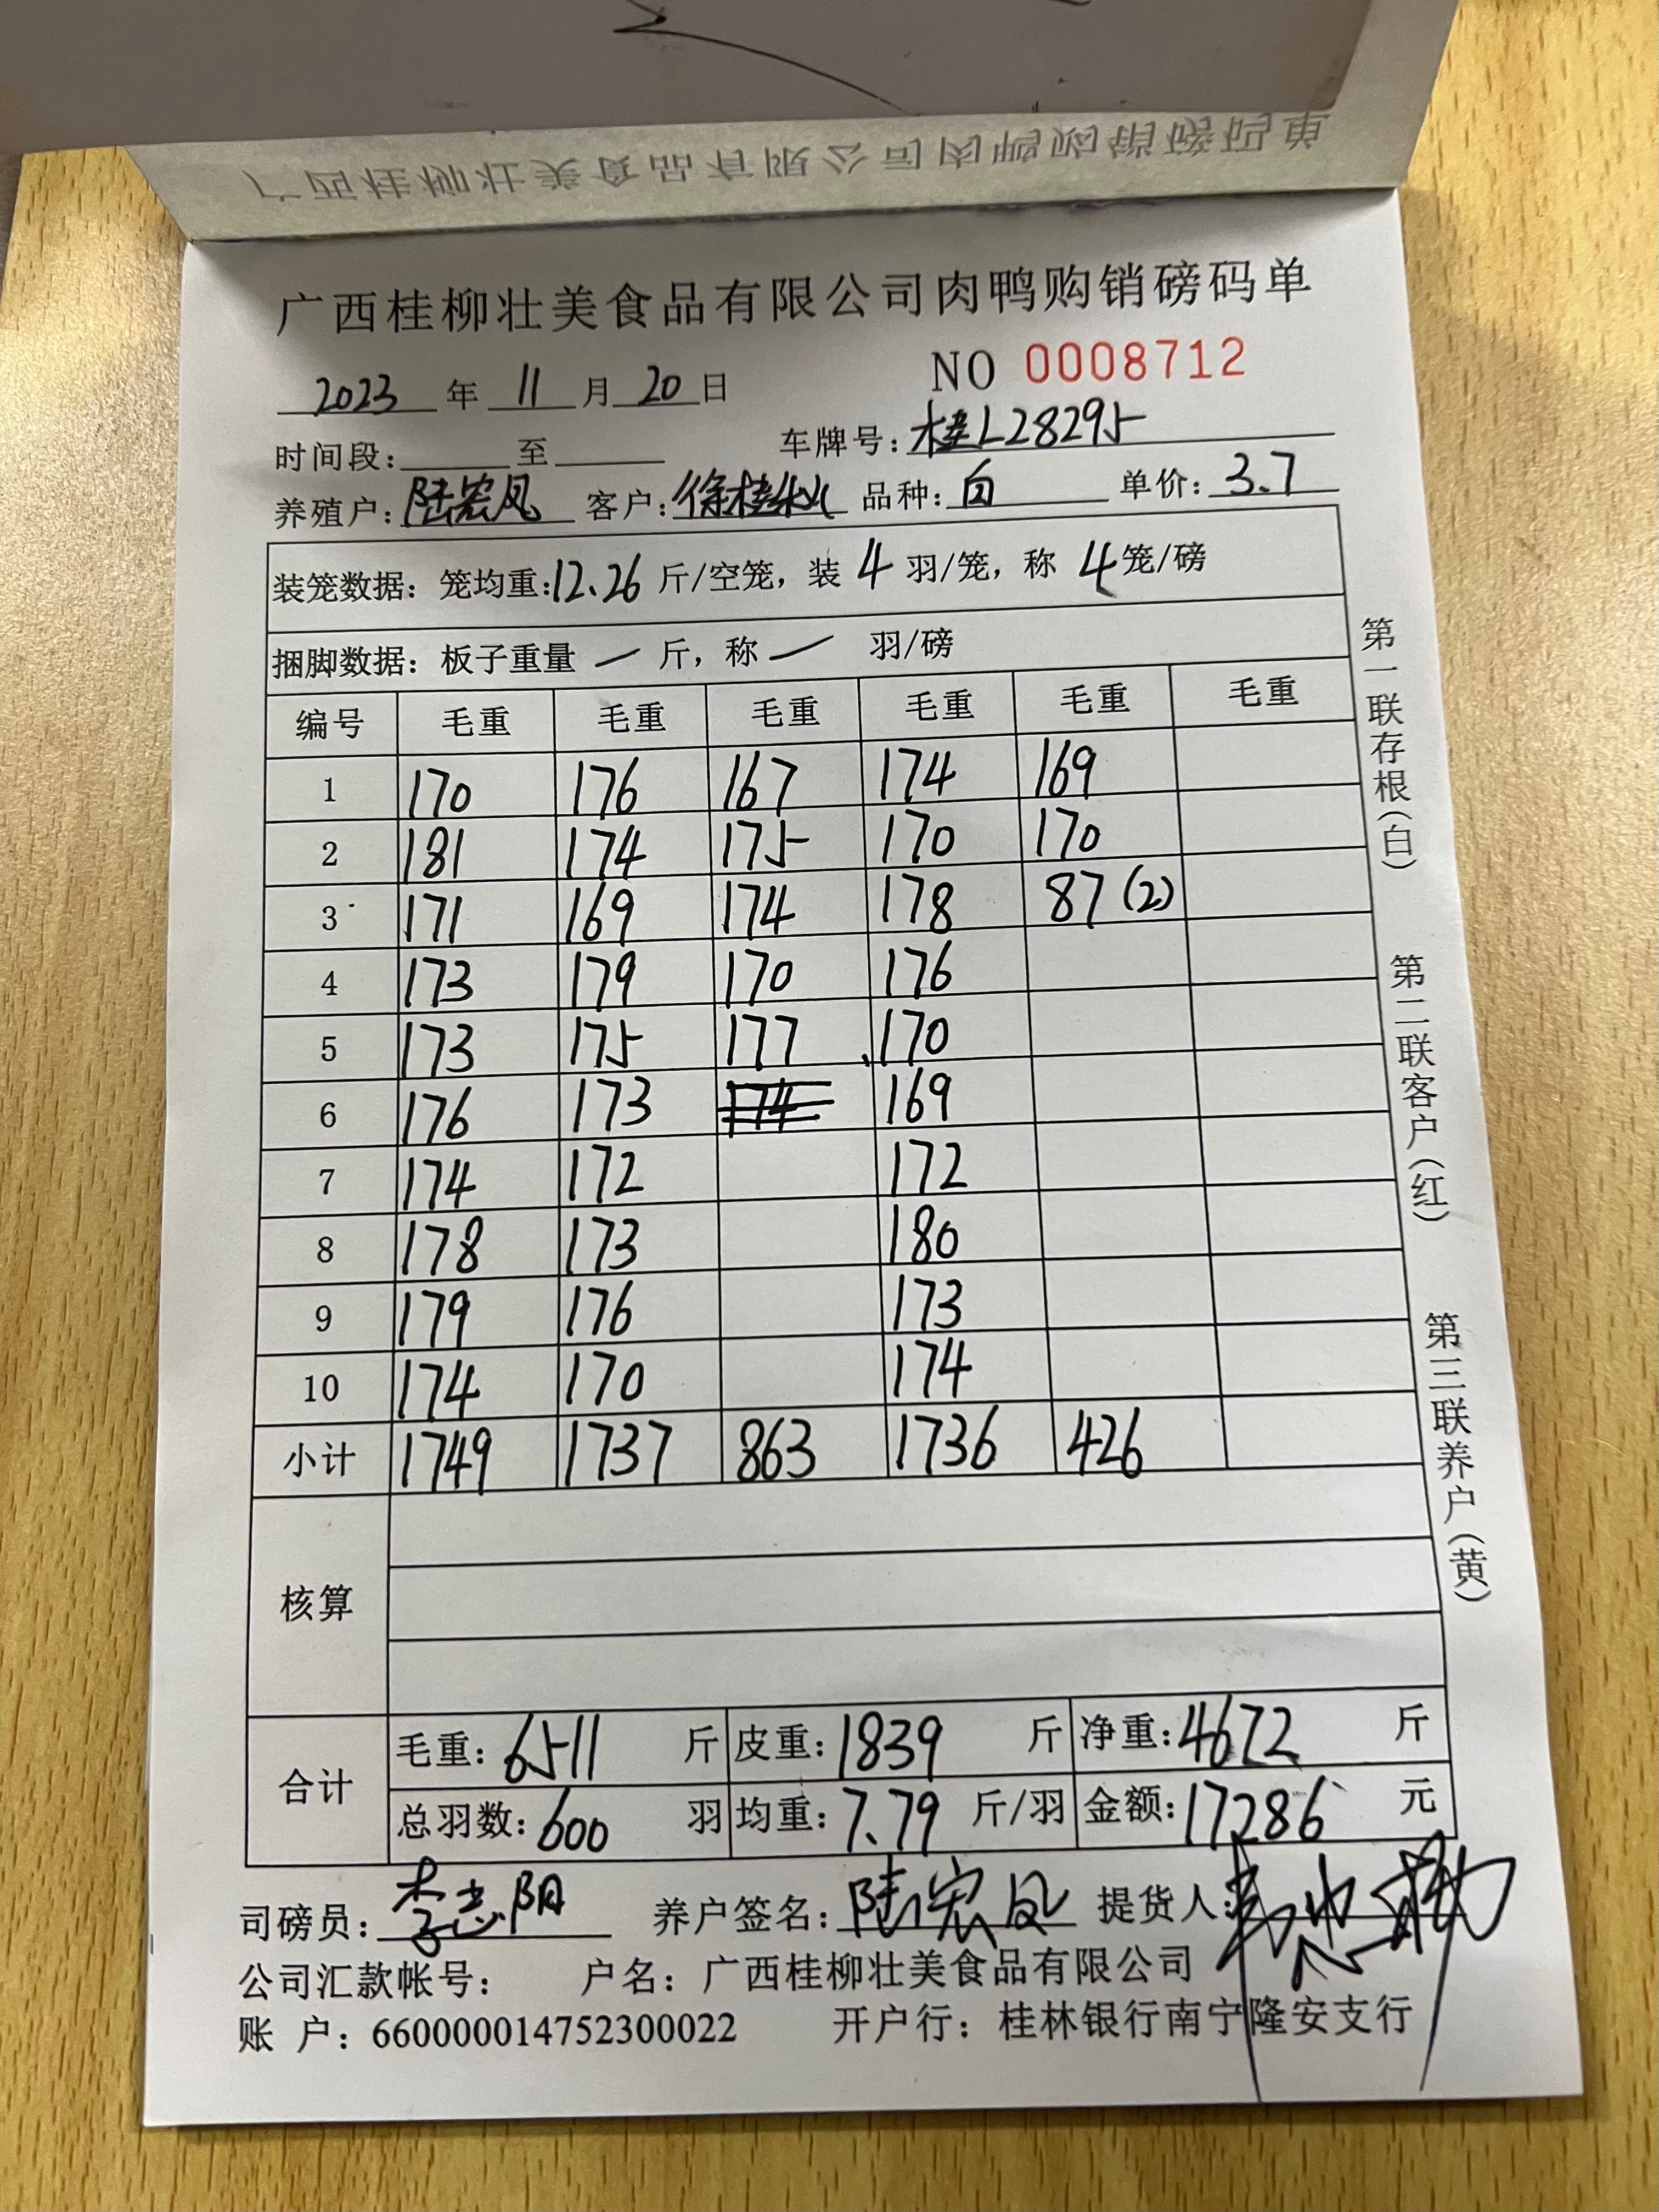 广西桂柳壮美食品有限公司肉鸭购销磅码单
广西桂柳壮美食品有限公司肉鸭购销磅码单
NO 0008712
2023 年 11 月 20 日
时间段: 至 车牌号: 桂L28295
养殖户: 陆宏凤 客户: 徐桂 品种: 白 单价: 3.7
装笼数据: 笼均重: 12.26 斤/空笼, 装 4 羽/笼, 称 4 笼/磅
捆脚数据: 板子重量 — 斤, 称 — 羽/磅
编号 毛重 毛重 毛重 毛重 毛重 毛重
1 170 176 167 174 169
2 181 174 175 170 170
3 171 169 174 178 87 (2)
4 173 179 170 176
5 173 175 177 170
6 176 173 174 169
7 174 172 172
8 178 173 180
9 179 176 173
10 174 170 174
小计 1749 1737 863 1736 426
核算
合计
毛重: 6511 斤 皮重: 1839 斤 净重: 4672 斤
总羽数: 600 羽 均重: 7.79 斤/羽 金额: 17286 元
司磅员: 李志阴 养户签名: 陆宏凤 提货人:
公司汇款帐号: 户名: 广西桂柳壮美食品有限公司
账 户: 660000014752300022 开户行: 桂林银行南宁隆安支行
第一联存根(白)
第二联客户(红)
第三联养户(黄)